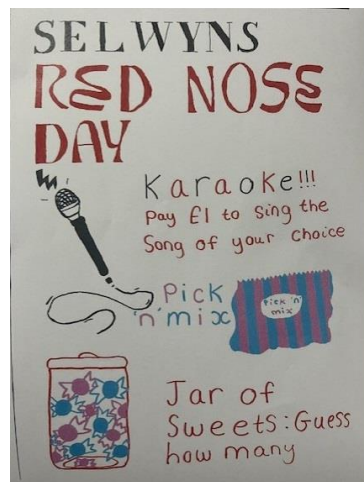 SELWYNS
RED NOSE
DAY
Karaoke!!!
Pay £1 to sing the
Song of your choice
Pick
'n' mix
Pick 'n'
mix
Jar of
Sweets: Guess
how many